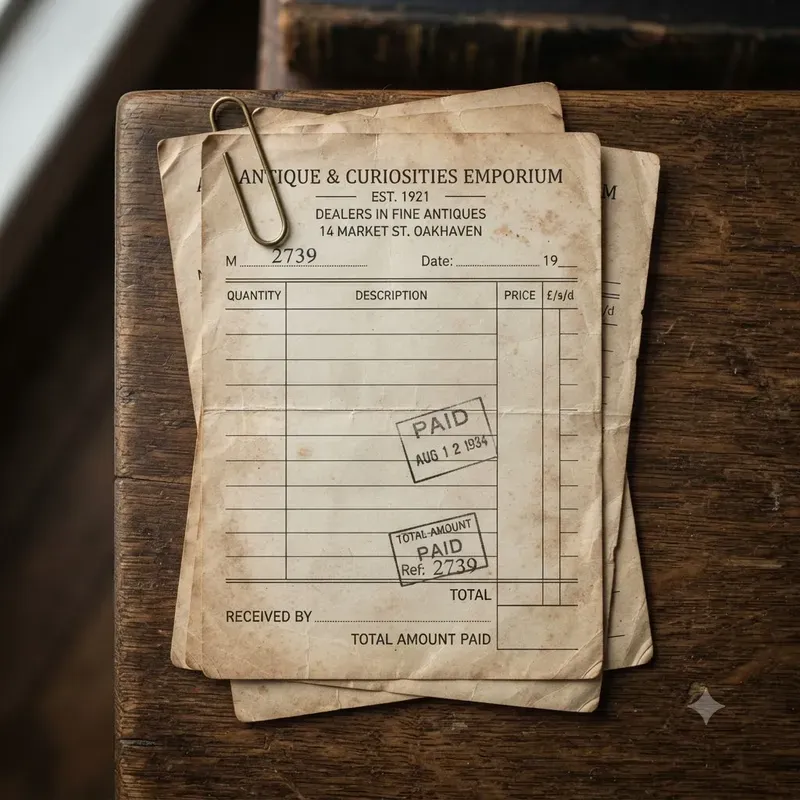 ANTIQUE & CURIOSITIES EMPORIUM
EST. 1921
DEALERS IN FINE ANTIQUES
14 MARKET ST. OAKHAVEN
M 2739 Date: 19
QUANTITY DESCRIPTION PRICE £/s/d
PAID
AUG 12 1934
TOTAL-AMOUNT
PAID
Ref: 2739
TOTAL
RECEIVED BY
TOTAL AMOUNT PAID
M
/d